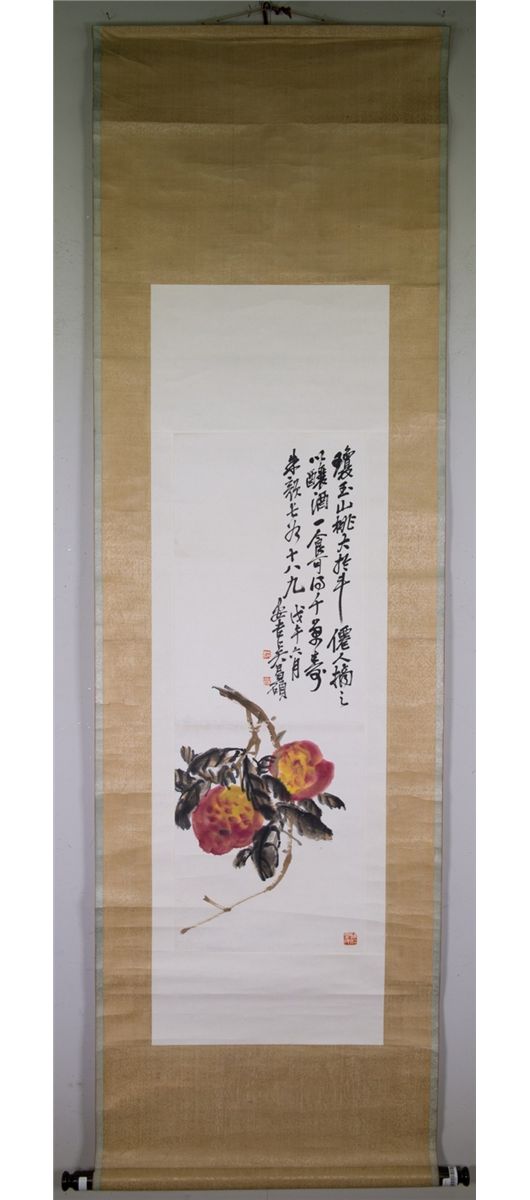 瓊玉山桃大於斗僊人摘之
以釀酒一食可得千萬壽
朱顏長如十八九
戊午六月
安吉吳昌碩